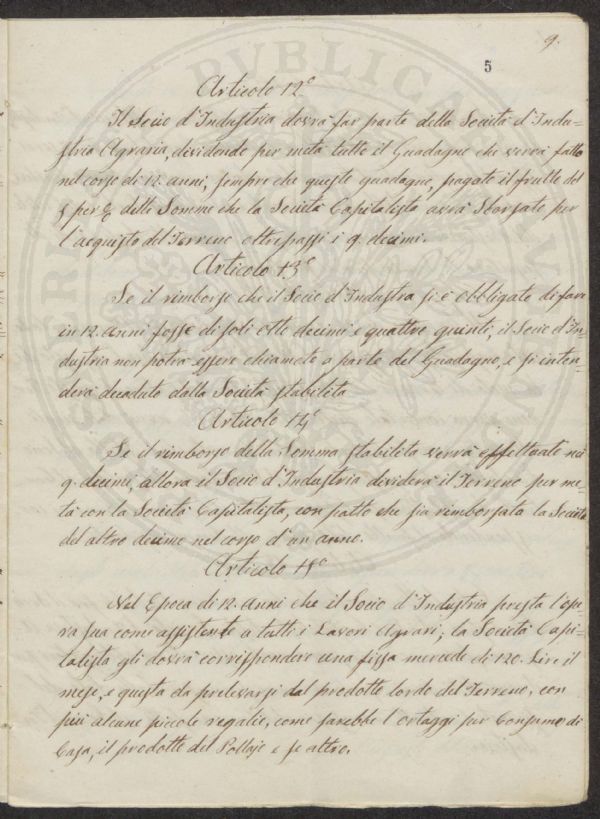 9.
5
Articolo 12°
Il Socio d'Industria dovrà far parte della Società d'Indu=
stria Agraria, dividendo per metà tutto il Guadagno che verrà fatto
nel corso di 12. anni, sempre che questo guadagno, pagato il frutto del
5 per % delle Somme che la Società Capitalista avrà Sborsate per
l'acquisto del Terreno oltrepassi i 9. decimi.
Articolo 13°
Se il rimborso che il Socio d'Industra si è obbligato di fare
in 12. anni fosse di soli otto decimi e quattro quinti, il Socio d'In=
dustria non potrà essere chiamato a parte del Guadagno, e si inten=
derà decaduto dalla Società stabilita
Articolo 14°
Se il rimborso della Somma stabilita verrà effettuato nei
9. decimi, allora il Socio d'Industria dividerà il Terreno per me=
tà con la Società Capitalista, con patto che sia rimborsata la Società
del altro decimo nel corso d'un anno.
Articolo 15°
Nel Epoca di 12. Anni che il Socio d'Industria presta l'ope=
ra sua come assistente a tutti i Lavori Agrari, la Società Capi=
talista gli dovrà corrispondere una fissa mercede di 120. Lire il
mese, e questa da prelevarsi dal prodotto lordo del Terreno, con
più alcune piccole regalie, come sarebbe l'ortaggi per Consumo di
Casa, il prodotto del Pollajo e se altro.